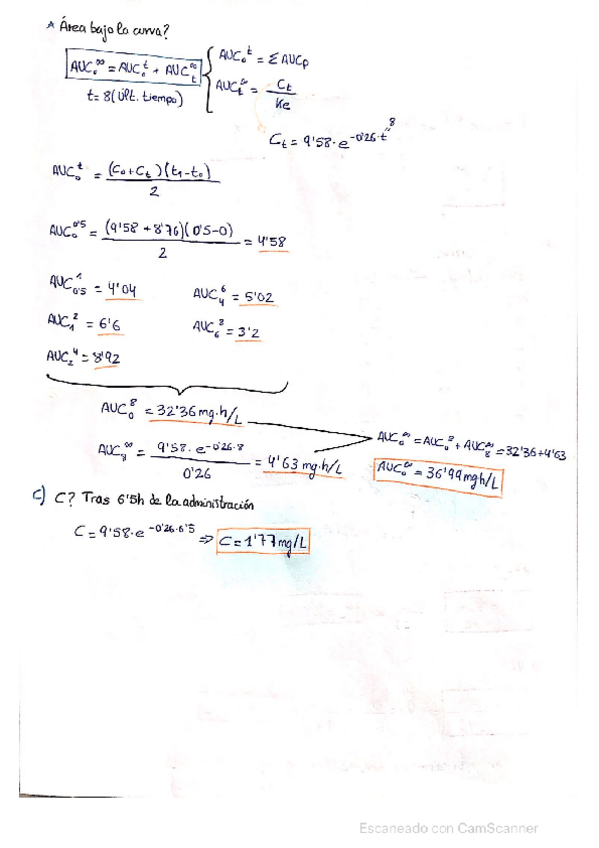 * Área bajo la curva?
AUC₀^∞ = AUC₀^t + AUC_t^∞
AUC₀^t = Σ AUCp
AUC_t^∞ = Ct / Ke
t = 8 (últ. tiempo)
Ct = 9'58 · e^-0'26·t" 8
AUC₀^t = (C₀ + Ct)(t₁ - t₀) / 2
AUC₀^0'5 = (9'58 + 8'76)(0'5 - 0) / 2 = 4'58
AUC_0'5^1 = 4'04
AUC₄^6 = 5'02
AUC₁^2 = 6'6
AUC₆^8 = 3'2
AUC₂^4 = 8'92
AUC₀^8 = 32'36 mg·h/L
AUC₈^∞ = 9'58 · e^-0'26·8 / 0'26 = 4'63 mg·h/L
AUC₀^∞ = AUC₀^8 + AUC₈^∞ = 32'36 + 4'63
AUC₀^∞ = 36'99 mg h/L
c) C? Tras 6'5h de la administración
C = 9'58 · e^-0'26·6'5 ⇒ C = 1'77 mg/L
Escaneado con CamScanner